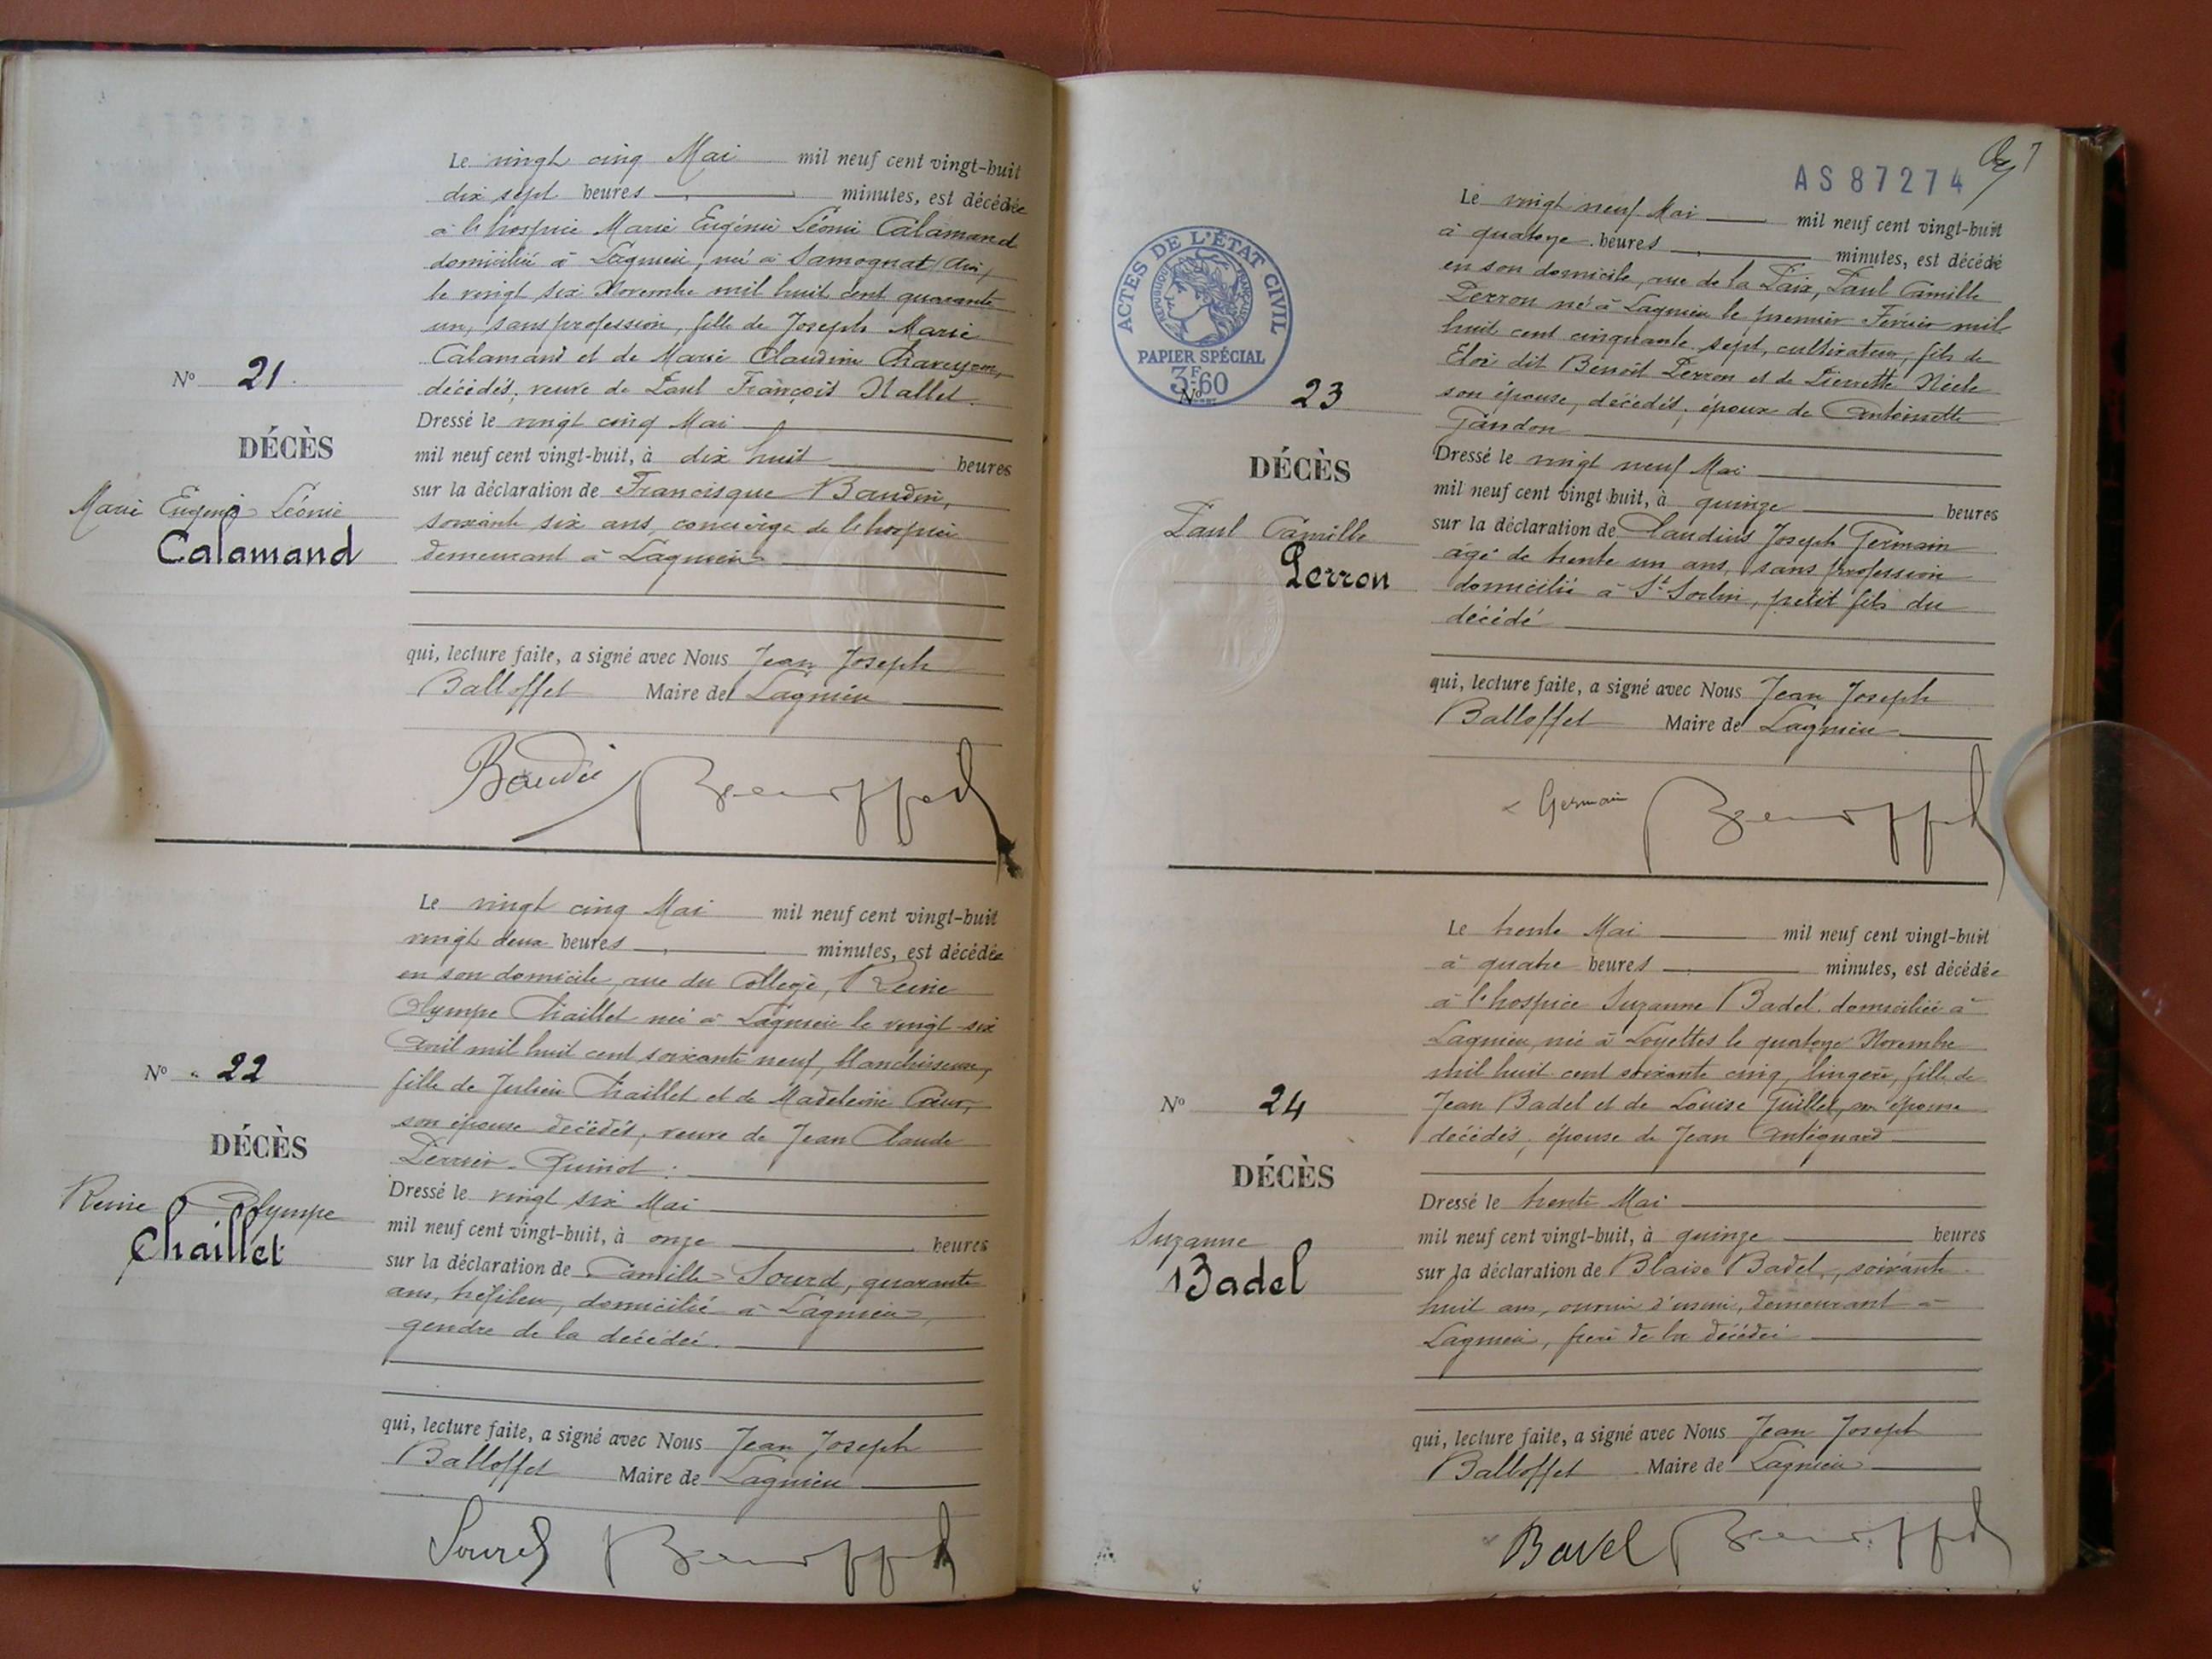 Le vingt cinq Mai mil neuf cent vingt-huit
dix sept heures minutes, est décédée
à l'hospice Marie Eugénie Léonie Calamand
domiciliée à Lagnieu, née à Samognat (Ain)
le vingt six Novembre mil huit cent quarante
un, sans profession, fille de Joseph Marie
Calamand et de Marie Claudine
décédés, veuve de Paul François Nallet
Nº 21
DÉCÈS
Marie Eugénie Léonie
Calamand
Dressé le vingt cinq Mai
mil neuf cent vingt-huit, à dix huit heures
sur la déclaration de Francisque Baudin,
soixante six ans, concierge de l'hospice
demeurant à Lagnieu
qui, lecture faite, a signé avec Nous Jean Joseph
Balloffet Maire de Lagnieu
Baudin
Le vingt cinq Mai mil neuf cent vingt-huit
vingt deux heures minutes, est décédée
en son domicile, rue du Collège, Reine
Olympe Chaillet née à Lagnieu le vingt-six
Avril mil huit cent soixante neuf, blanchisseuse,
fille de Julien Chaillet et de Madeleine Cœur,
son épouse décédés, veuve de Jean Claude
Perrier-Quinot
Nº 22
DÉCÈS
Reine Olympe
Chaillet
Dressé le vingt six Mai
mil neuf cent vingt-huit, à onze heures
sur la déclaration de Camille Sourd, quarante
ans, tréfileur, domicilié à Lagnieu,
gendre de la décédée.
qui, lecture faite, a signé avec Nous Jean Joseph
Balloffet Maire de Lagnieu
Sourd
AS 87274
7
ACTES DE L'ÉTAT CIVIL
RÉPUBLIQUE FRANÇAISE
PAPIER SPÉCIAL
3F.60
Le vingt neuf Mai mil neuf cent vingt-huit
à quatorze heures minutes, est décédé
en son domicile, rue de la Paix, Paul Camille
Perron né à Lagnieu le premier Février mil
huit cent cinquante sept, cultivateur, fils de
Eloi dit Benoît Perron et de Pierrette
son épouse, décédés, époux de Antoinette
Gandon
Nº 23
DÉCÈS
Paul Camille
Perron
Dressé le vingt neuf Mai
mil neuf cent vingt-huit, à quinze heures
sur la déclaration de Claudius Joseph Germain
âgé de trente un ans, sans profession
domicilié à St Sorlin, petit fils du
décédé
qui, lecture faite, a signé avec Nous Jean Joseph
Balloffet Maire de Lagnieu
Germain
Le trente Mai mil neuf cent vingt-huit
à quatre heures minutes, est décédée
à l'hospice Suzanne Badel domiciliée à
Lagnieu, née à Loyettes le quatorze Novembre
mil huit cent soixante cinq, lingère, fille de
Jean Badel et de Louise Guillet, son épouse
décédés, épouse de Jean Antégnard
Nº 24
DÉCÈS
Suzanne
Badel
Dressé le trente Mai
mil neuf cent vingt-huit, à quinze heures
sur la déclaration de Blaise Badel, soixante
huit ans, ouvrier d'usine, demeurant à
Lagnieu, frère de la décédée
qui, lecture faite, a signé avec Nous Jean Joseph
Balloffet Maire de Lagnieu
Badel